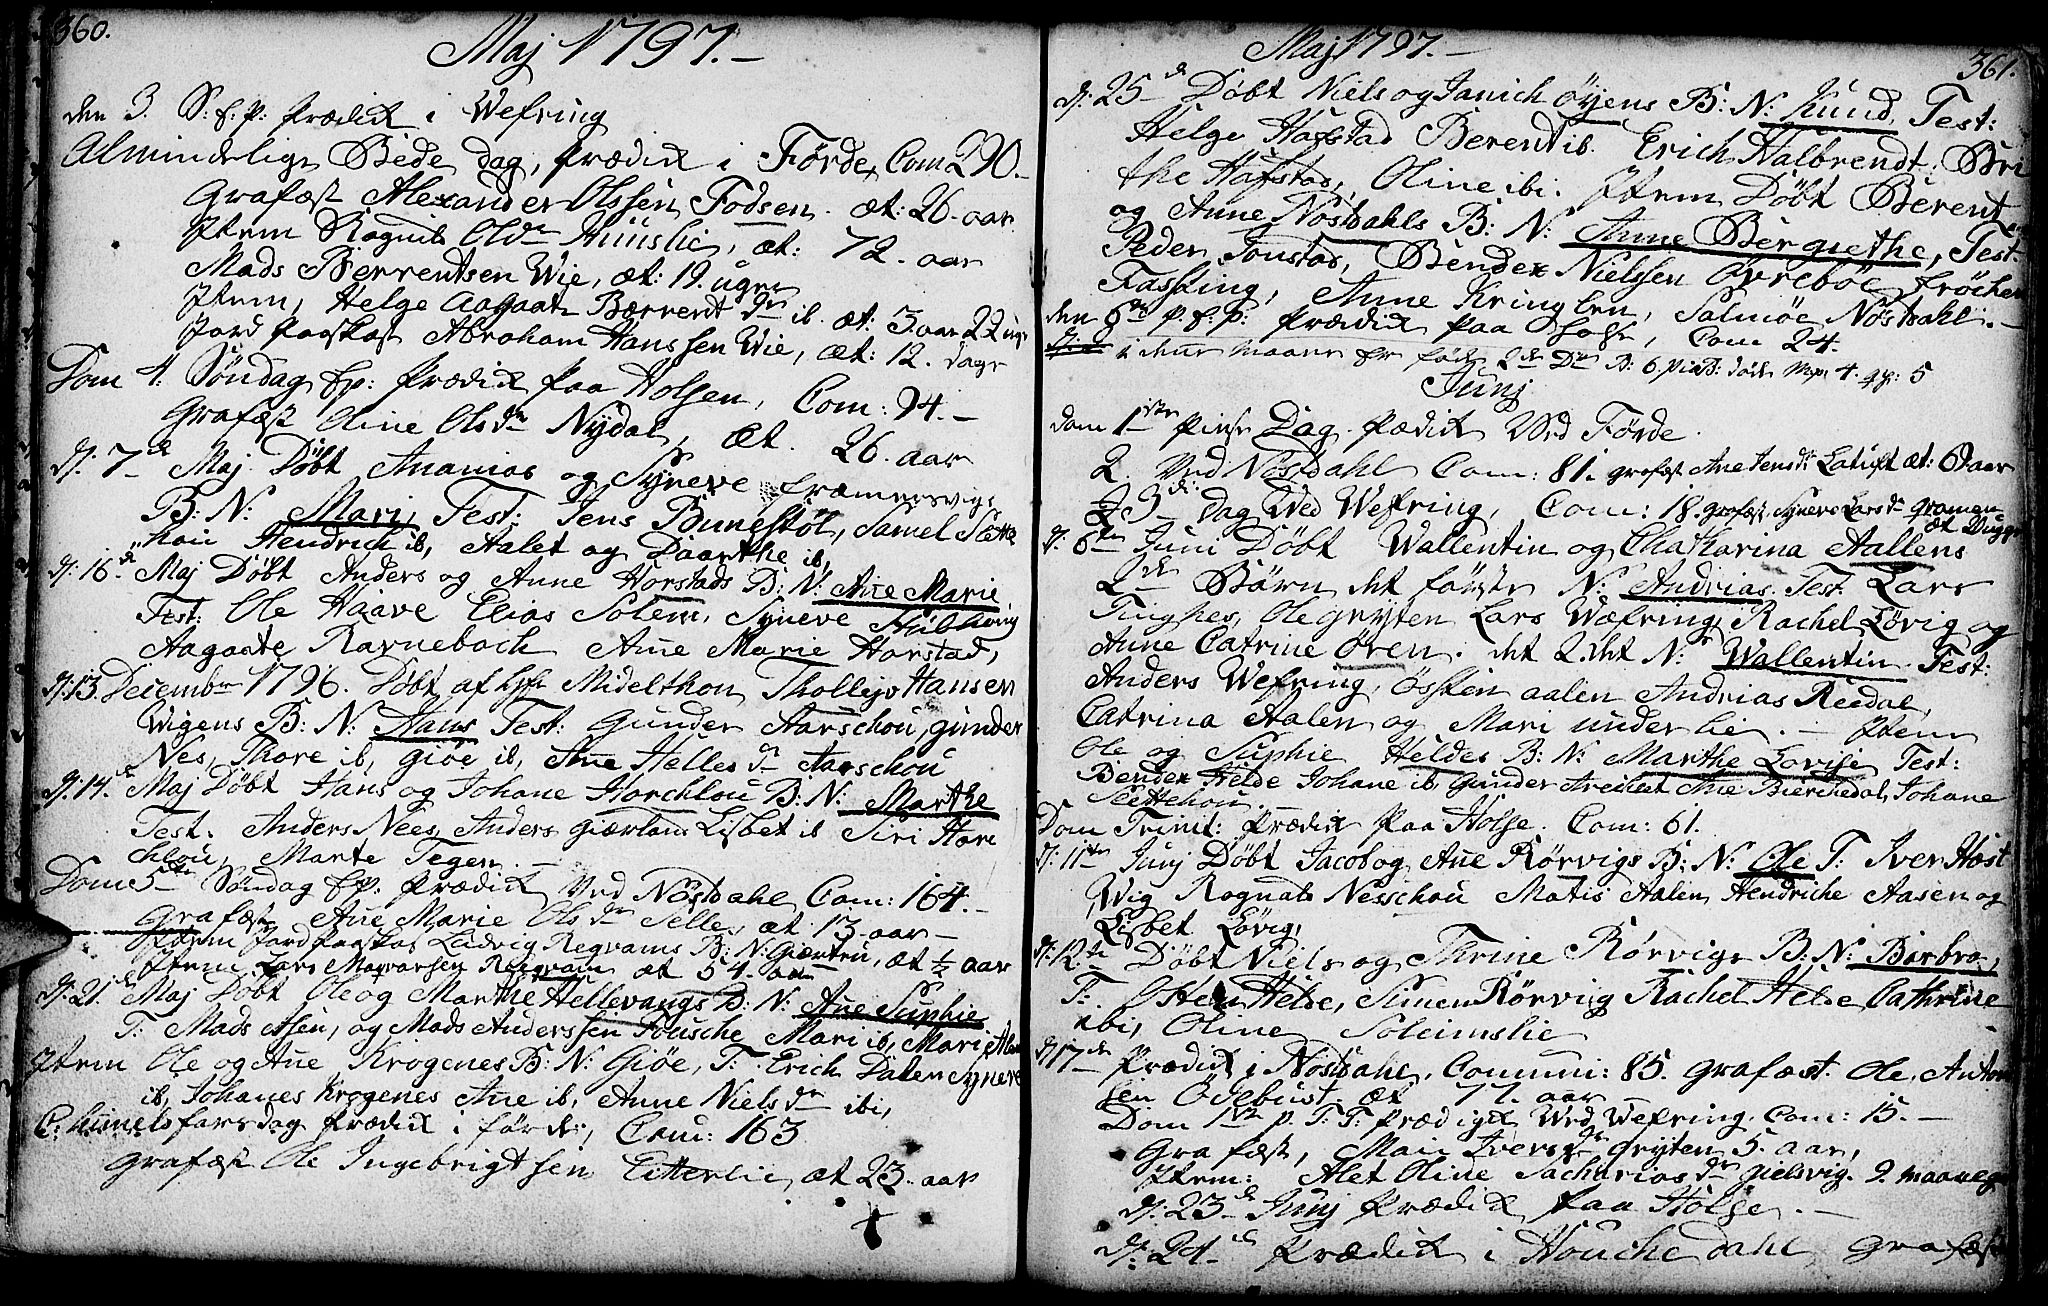 360.
Maj 1797.-
den 3. S: f: p: prædik i Wefring
Almindelige Bede dag, prædik i Førde, Com 290.-
Grafæst Alexander Olssen Fodsen. æt: 26. aar.
Item Rognild Olsdr Hunslie, æt: 72. aar
Mads Berrentsen Wie, æt: 19. uger
Item, Helge Aagaate Bærrentdr ib. æt: 3. aar 22 uger
Jord paaskast Abraham Hanssen Wie, æt: 12. dage
Dom 4. Søndag Ep: prædik paa Holsen, Com: 94.-
Grafæst Oline Olsdr Nydal, æt. 26. aar
d: 7de Maj Døbt Ananias og Syneve Fræmersvigs
B: N: Mari, Test: Jens Bunestøl, Samel Slette
hou Hendrich ib, Aalet og Daarthe ib,
d: 16de Maj Døbt Anders og Anne Horstads B: N: Ane Marie,
Test: Ole Haave Elias Solem, Syneve
Aagaate Ravneboch Ane Marie Horstad,
d: 13. December 1796. Døbt af hr Midelthon Thollejv Hansen
Wigens B: N: Hans Test: Gunder Aarschou, gunder
Nes, Thore ib, gioe ib, Ane Hellesdr Aarschou
d: 14de Maj Døbt Hans og Johane Horchlou B: N: Marthe
Test. Anders Nees, Anders Giærland Lisbet ib Siri Hore
chlou, Marte Tegen.-
Dom 5te Søndag Ep: prædik Ved Nøstdahl, Com: 164.-
Grafæst Ane Marie Olsdr Selle, æt: 13. aar-
Item Jord paakast Ludvig Regvams B: N: Giertru, æt ½ aar
Item Lars Regvam æt 54. aar
d: 21de Maj Døbt Ole og Marthe Hellevangs B: N: Ane Suphie
T: Mads Asen, og Mads Anderssen Fousche Mari ib, Mari
Item Ole og Ane Krogenes B: N: Giøe, T: Erich Dalen Synev
ib, Johanes Krogenes Ane ib, Anne Nielsdr ibi,
C. himelsfarsdag prædik i førde, Com: 163
Grafæst Ole Ingebrigtsen Eitterlie, æt 23. aar
361.
Maj 1797.-
d: 25de Døbt Niels og Janich Øyens B: N: Knud, Test:
Helge Hafstad Berent ib. Erich Halbrendt, Bri
the Hafstad, Oline ibi. Item Døbt Berent
og Anne Nøstdahls B: N: Anne Bergrethe, Test:
Peder Tonstad, Bendex Nielssen Øvrebøe frøchen
Fassting, Anne Kringlen, Salmøe Nøstdahl.-
den 6te p. E: P: prædik paa Holse, Com 24.
i denne maaner er født 2de Dr B: 6. Døde Mp: 4. qp: 5
Junj
Dom 1ste pinse Dag. prædik Ved Førde.
2. Ved Nøstdahl Com: 81. grafæst Ane Jensdr æt: 69 aar
J 3di Dag Wed Wefring, Com: 18. grafæst, Syneve Larsdr Gramen
æt
d: 6te Juni Døbt Wallentin og Chatharina Aallens
2de Børn det første N: Andrias Test: Lars
Tinghes, Ole Gryten Lars Wefring, Rachel Løvig og
Anne Catrine Øren. det 2. det N: Wallentin. Test:
Anders Wefring, Østen aalen Andrias Reedal,
Catrina Aalen og Mari underlie.- Item
Ole og Suphie Heldes B: N: Marthe Lovise Test:
Bendex Helde Johane ib, Gunder Ane Bierchedal, Johane
Slettehou.
Dom Trinit: prædik paa Holse. Com: 61.
d: 11te Junj Døbt Jacob og Ane Rørvigs B: N: Ole T: Iver Hæst
Wig Rognald Nesschou Matis Aalen, Hendriche Aasen og
Lisbet Løvig,
d: 12te Døbt Niels og Thrine Rørvigs B: N: Barbra,
T: Helde, Simen Rørvig Rachel Helde Cathrine
ibi, Oline Soleimslie
d: 17de prædik i Nøstdahl, Commni: 85. grafæst. Ole Anton
sen Ødebust. æt 77. aar
Dom 1ste p. T: T: prædiget Wed Wefring. Com: 15.-
Grafæst, Mari Iversdr gryten 5. aar,
Item: Alet Oline Sachariasdr gielsvig. 9. maaneder
d: 23de Junj prædik paa Holse.-
d: 24de prædik i Houchedahl, Grafæst